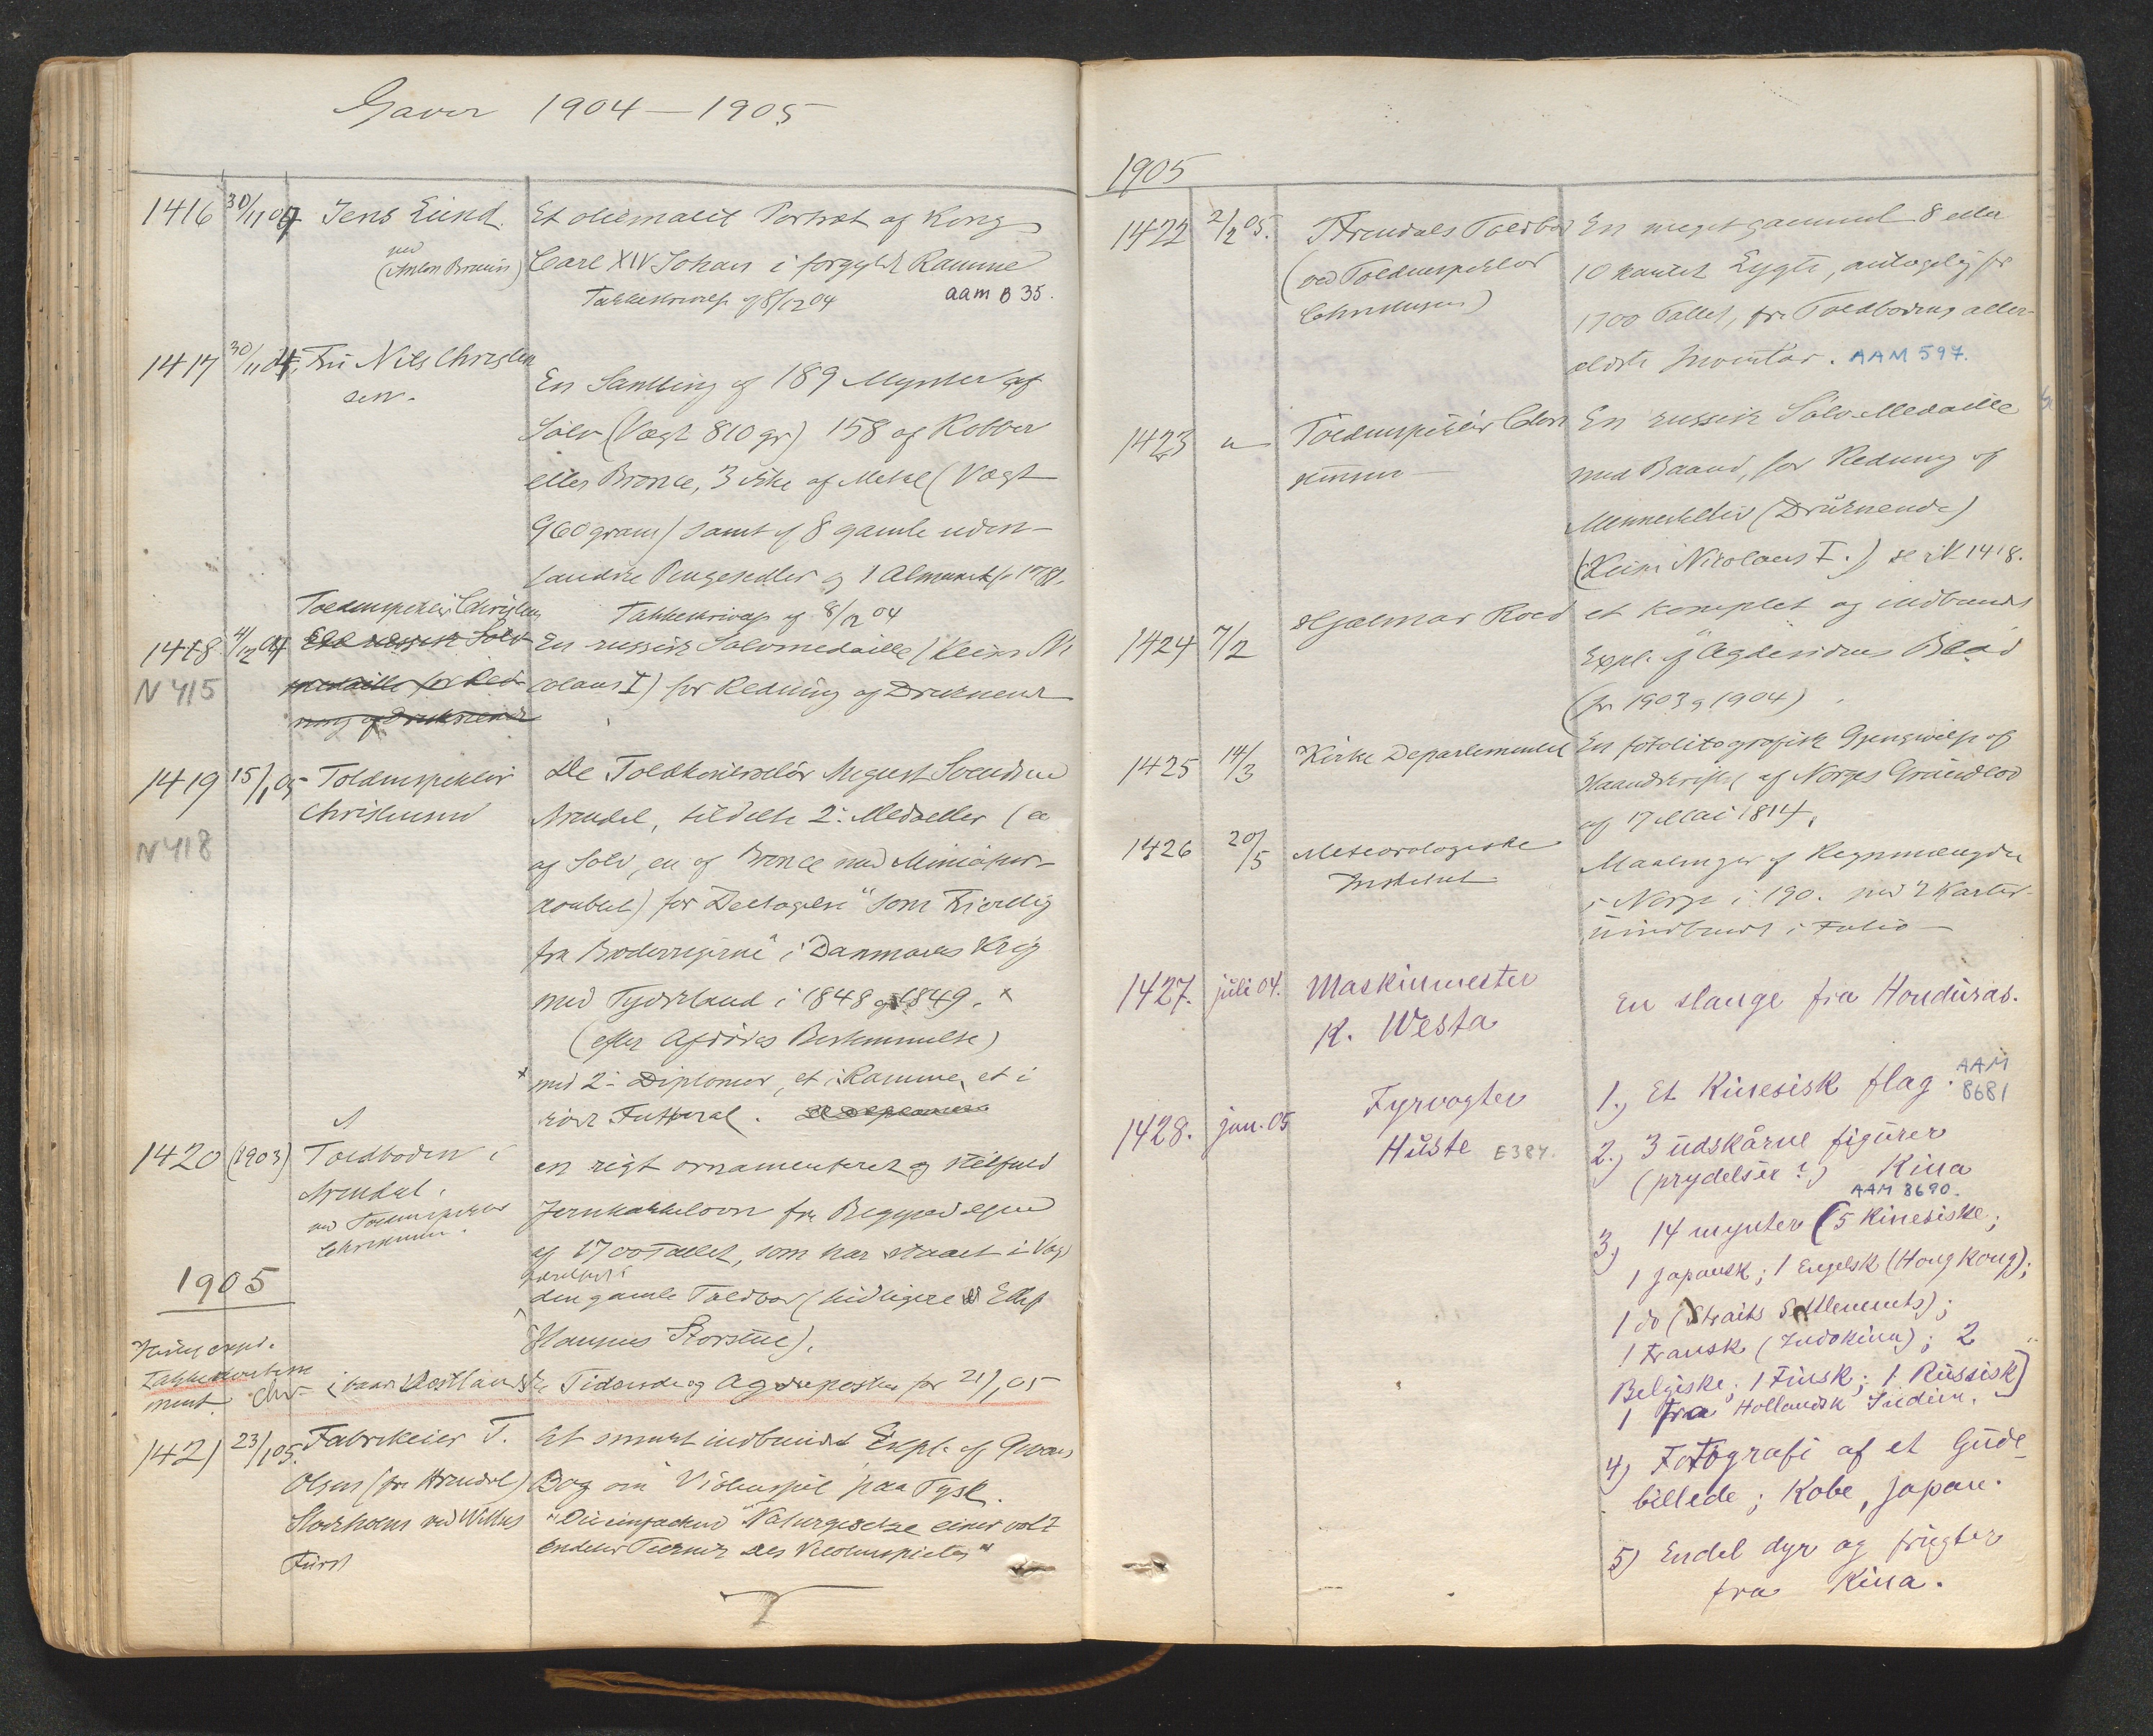 Gaver 1904–1905
1416 30/11 04 Jens Lund. Et oliemalet Portræt af Kong
ved
(Anton Bruun) Carl XIV Johan i forgyldt Ramme
Takkeskrivelse af 8/12 04 aam B 35.
1417 30/11 04. Fru Nils Christen
sen.
En Samling af 189 Mynter af
Sølv (Vægt 810 gr) 158 af Kobber
eller Bronce, 3 Stke af Metal (Vægt
960 gram) samt af 8 gamle uden-
landske Pengesedler og 1 Almanak fr 1781.
Toldinspektør Christensen Takkeskrivelse af 8/12 04
1418 4/12 04 Et russisk Sølv En russisk Sølvmedaille (Keiser Ni
N 415 medaille for Red colaus I) for Redning af Druknende
ning af Druknende
1419 15/1 05 Toldinspektør De Toldkasserer August Svendsen
Christensen Arendal, tildelte 2: Medaller (en
N 418 af Sølv, en af Bronce med Miniatur-
doublet) for Deltagelse "som Frivillig
fra Broderrigerne" i Danmarks Krig
med Tydskland i 1848 og 1849. x
(efter Afdødes Bestemmelse)
x med 2: Diplomer, et i Ramme, et i
rødt Futteral.
1420 (1903) Toldboden i en rigt ornamenteret og stilfuld
Arendal,
ved Toldinspektør Jernkakkelovn fra Begyndelsen
Christensen. af 1700 Tallet, som har staaet i Vag
1905 den gamle Toldbod (tidligere Ellef
Hansens Storstue).
i baade Vestlandske Tidende og Agdeposten for 21/1 05
1421 23/1 05. Fabrikeier T. Et smukt indbundet Expl. af
Olsen (fra Arendal) Bog om Violinspil paa Tysk.
Storholm ved Wilhs "Die einfachen Naturgesetze einer voll
Fürst endeten Technik des Violinspieles"
1905
1422 2/2 05. Arendals Toldbod En meget gammel 8 eller
(ved Toldinspektør 10 kantet Lygte, antagelig fr
Christensen) 1700 Tallet, fra Toldbodens aller
ældste Inventar. AAM 597.
1423 " Toldinspektør Chri En russisk Sølv-Medaille
stensen med Baand, for Redning af
Menneskeliv (Druknende)
(Keiser Nicolaus I.) se N 1418.
1424 7/2 Hjalmar Roed et komplet og indbundet
Expl. af "Agdesidens Blad
(for 1903 og 1904)
1425 14/3 Kirke Departementet En fotolitografisk Gjengivelse af
Haandskriftet af Norges Grundlov
af 17 Mai 1814.
1426 20/5 Meteorologiske Maalinger af Regnmængden
Institut i Norge i 190. med 2 Karter
uindbundet i Folio
1427. juli 04. Maskinmester En slange fra Honduras.
K. Westa
1428. jan. 05 Fyrvogter 1.) Et Kinesisk flag. AAM 8681
Huste E384. 2.) 3 udskårne figurer
(prydelser?) Kina
AAM 8690.
3) 14 mynter (5 Kinesiske;
1 Japansk; 1 Engelsk (Hong Kong);
1 do (Straits Settlements);
1 Fransk (Indokina); 2
Belgiske; 1 Finsk; 1 Russisk)
1 fra Hollandsk Indien.
4) Fotografi af et Gude-
billede; Kobe, Japan.
5) Endel dyr og frugter
fra Kina.